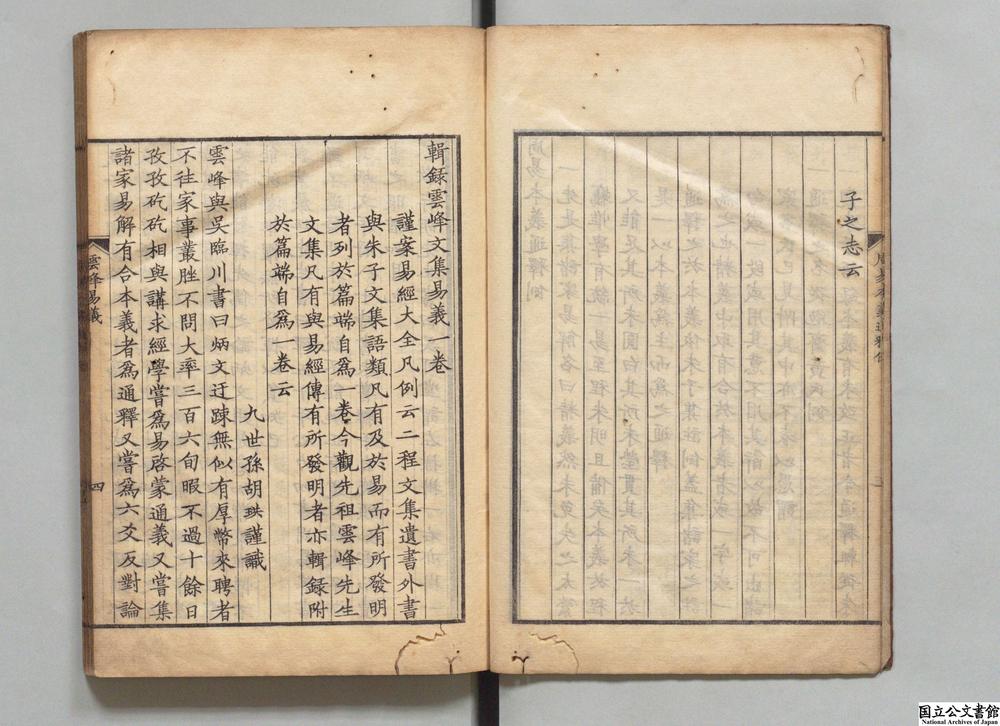 子之志云
輯録雲峰文集易義一卷
謹案易經大全凡例云二程文集遺書外書
與朱子文集語類凡有及於易而有所發明
者列於篇端自爲一卷今觀先祖雲峰先生
文集凡有與易經傳有所發明者亦輯録附
於篇端自爲一卷云
九世孫胡珙謹識
雲峰與吳臨川書曰炳文迂踈無似有厚幣來聘者
不徃家事叢脞不問大率三百六旬暇不過十餘日
孜孜矻矻相與講求經學嘗爲易啓蒙通義又嘗集
諸家易解有合本義者爲通釋又嘗爲六爻反對論
雲峰易義
四
国立公文書館
National Archives of Japan